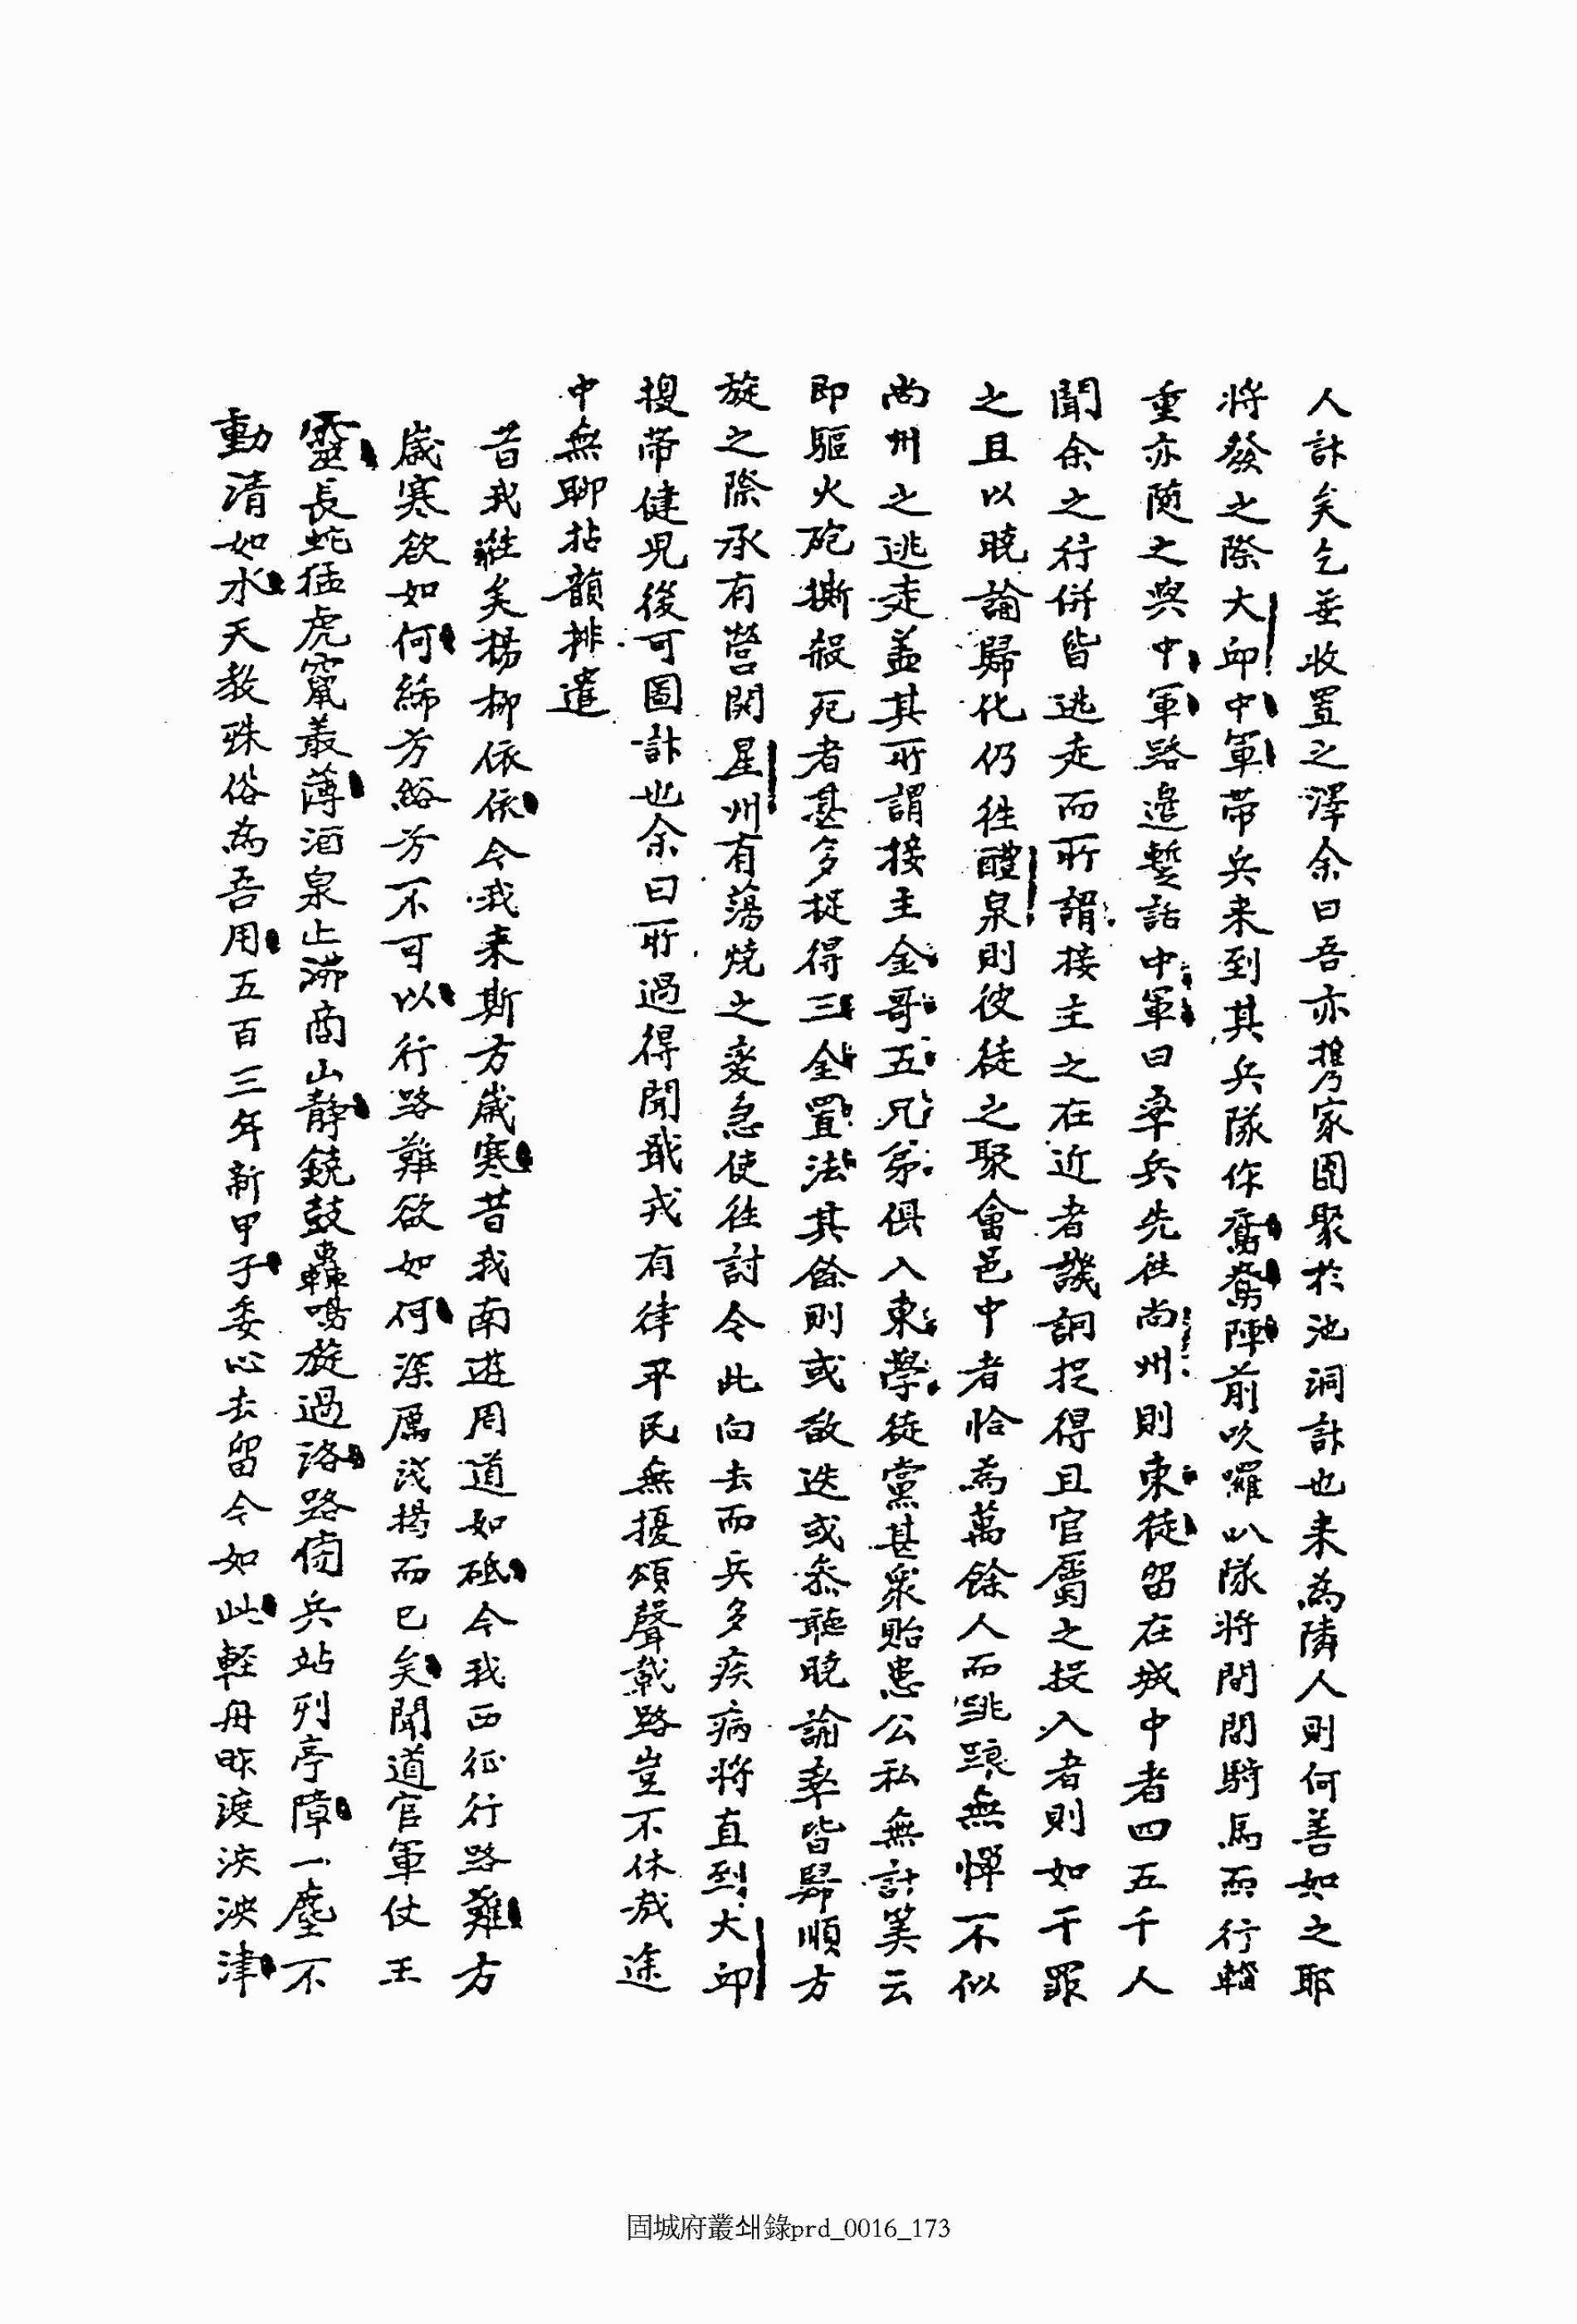 人計矣乞並收置之澤余曰吾亦携家團聚於池洞計也来為隣人則何善如之耶
將發之際大邱中軍帶兵来到其兵隊作鴛鴦陣前吹囉叭隊將間間騎馬而行輜
重亦随之與中軍路邊暫話中軍曰率兵先徃尚州則東徒留在城中者四五千人
聞余之行併皆逃走而所謂接主之在近者譏詗捉得且官屬之投入者則如干罪
之且以曉諭歸化仍徃醴泉則彼徒之聚會邑中者恰為萬餘人而跳踉無憚不似
尚州之逃走盖其所謂接主金哥五兄弟俱入東學徒黨甚衆貽患公私無計筭云
即驅火砲撕殺死者甚多捉得三金置法其餘則或敌迭或叅聽曉諭率皆歸順方
旋之際承有營関星州有蕩燒之変急使徃討今此向去而兵多疾病將直到大邱
搜帶健児後可圖計也余曰所過得聞戢戎有律平民無擾頌聲載路豈不休哉途
中無聊拈韻排遣
昔我徃矣楊柳依依今我来斯方歲寒昔我南遊周道如砥今我西征行路難方
歲寒欲如何絺芳綌芳不可以行路難欲如何深厲浅揭而已矣聞道官軍仗王
靈長蛇猛虎竄叢薄酒泉止沸商山靜鐃鼓轟鳴旋過洛路傍兵站列亭障一塵不
動清如水天教殊俗為吾用五百三年新甲子委心去留今如此輕舟昨渡泱泱津
固城府叢쇄錄prd_0016_173